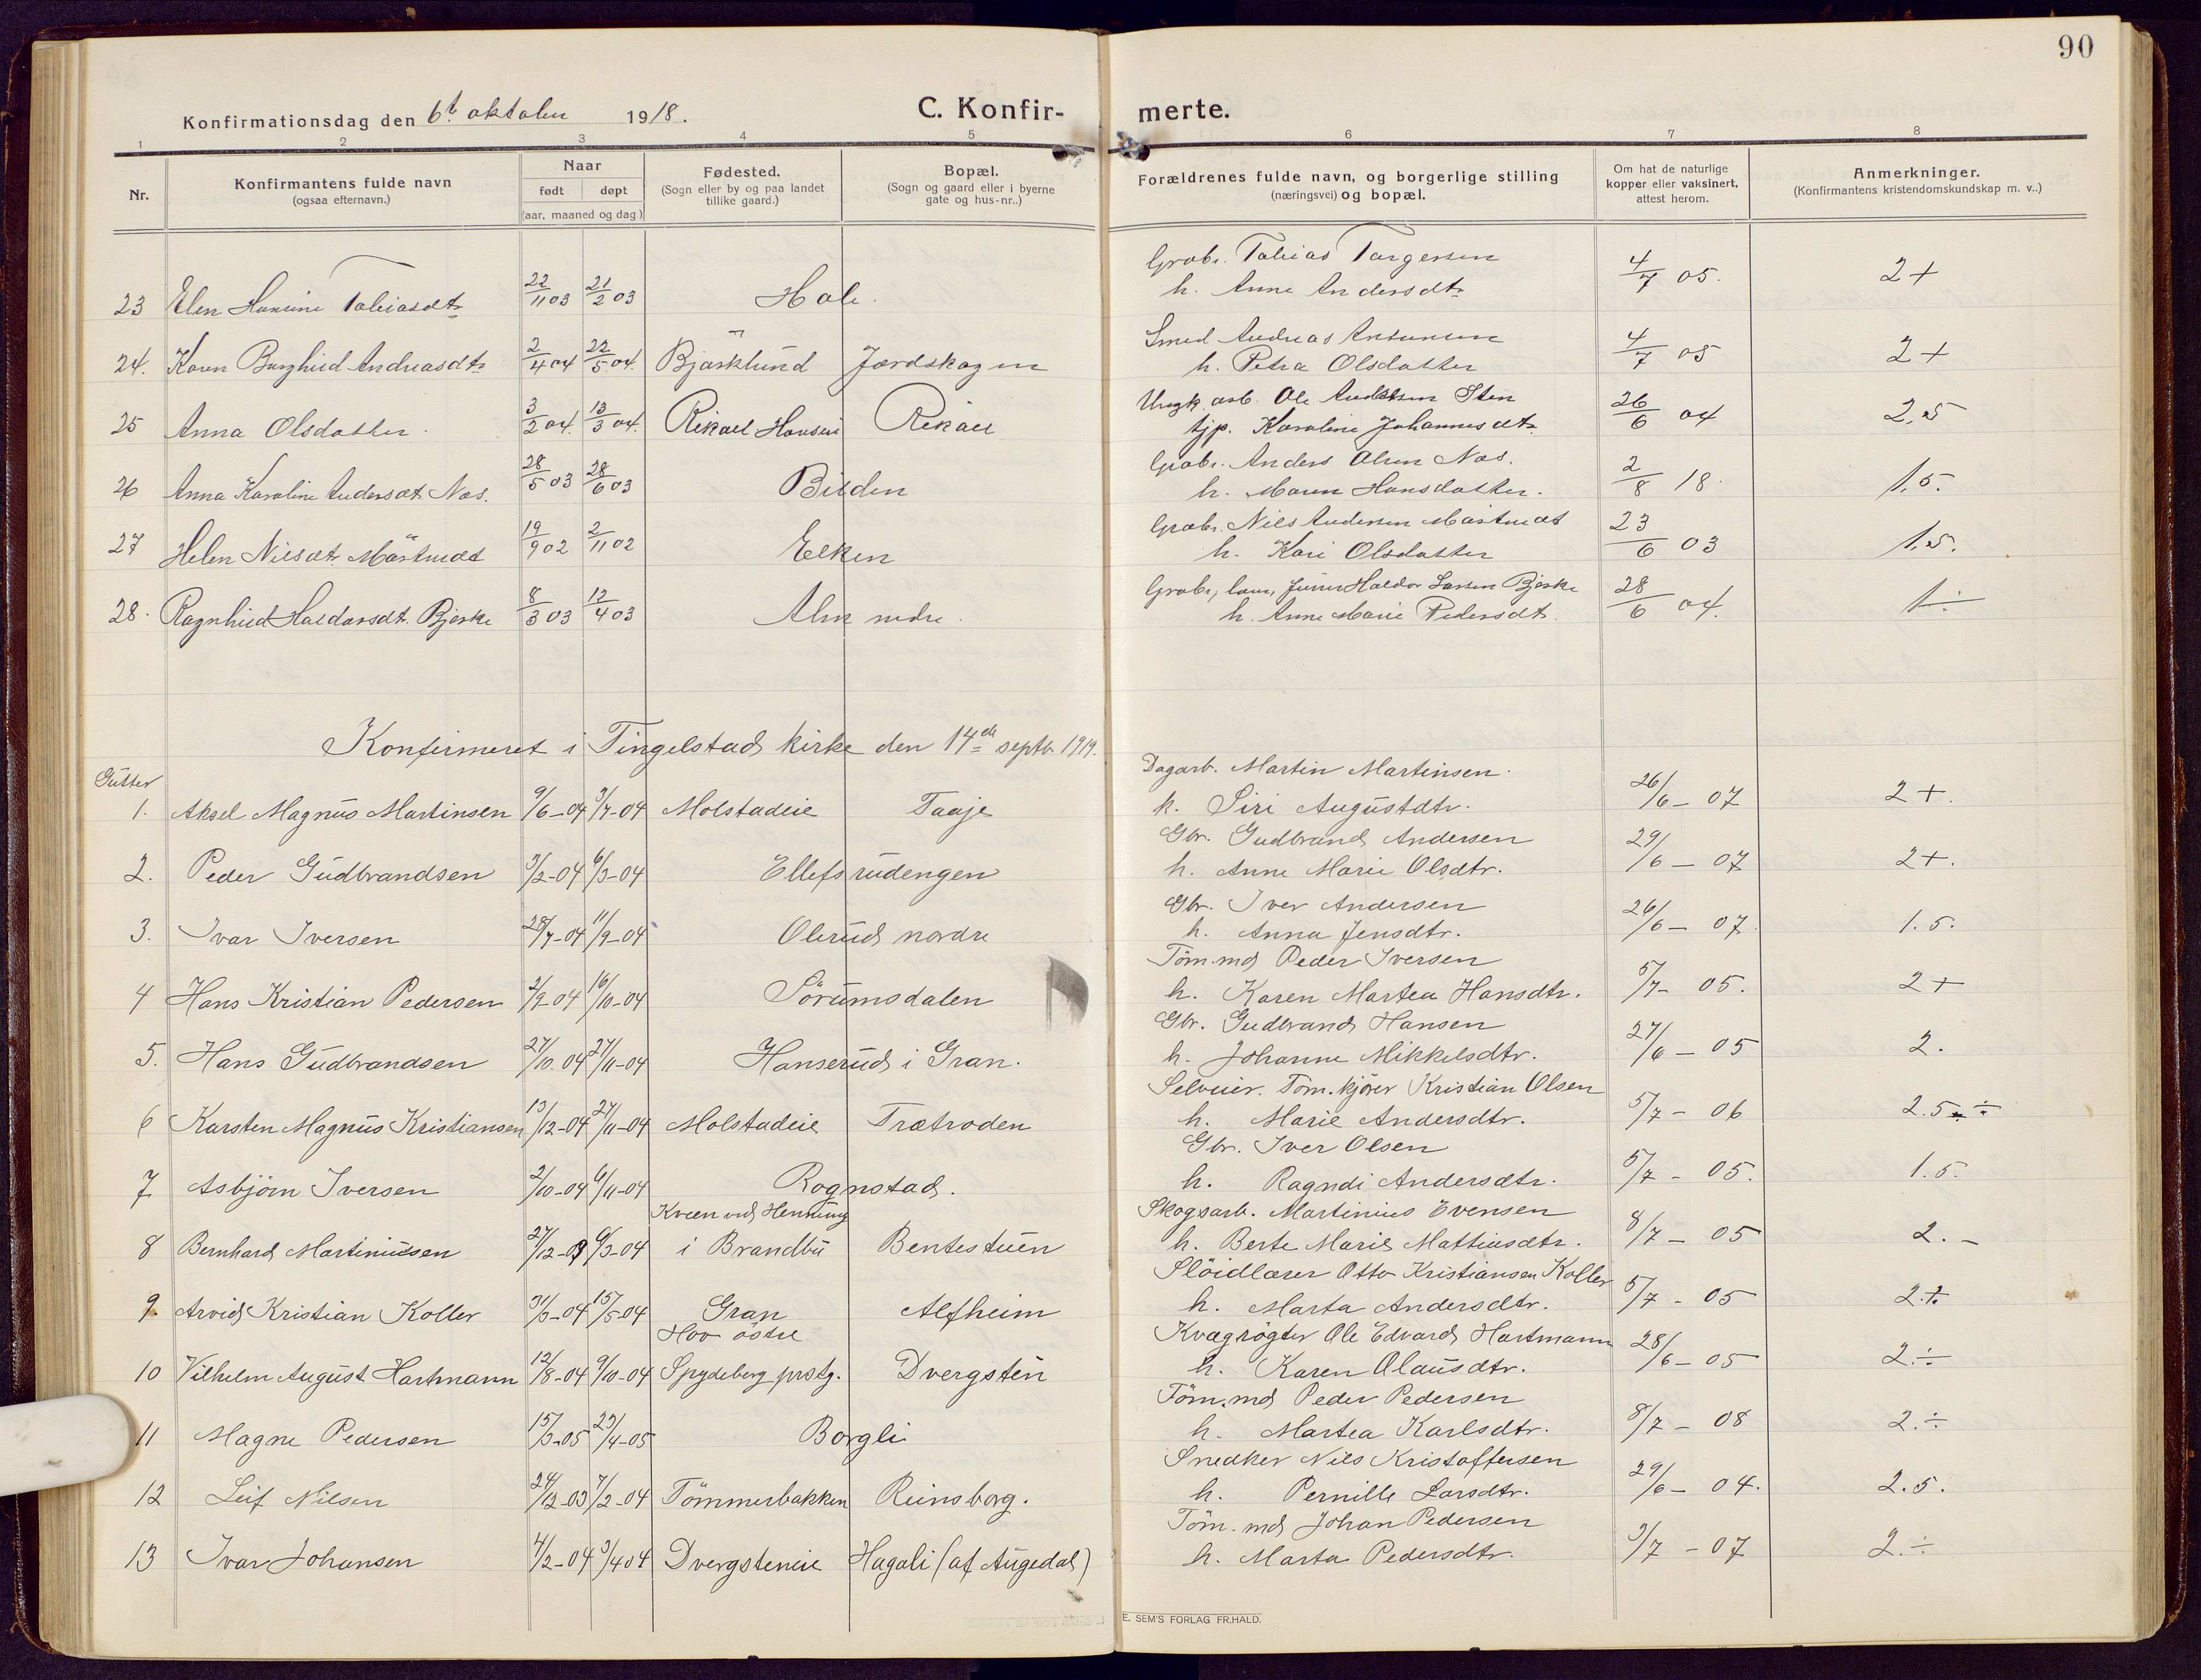 90
Konfirmationsdag den 6te oktober 1918.
C. Konfirmerte.
1 2 3 4 5 6 7 8
Nr.
Konfirmantens fulde navn
(ogsaa efternavn.)
Naar
født døpt
(aar, maaned og dag)
Fødested.
(Sogn eller by og paa landet
tillike gaard.)
Bopæl.
(Sogn og gaard eller i byerne
gate og hus-nr..)
Forældrenes fulde navn, og borgerlige stilling
(næringsvei) og bopæl.
Om hat de naturlige
kopper eller vaksinert,
attest herom.
Anmerkninger.
(Konfirmantens kristendomskundskap m. v..)
Grobr. Tobias Torgersen
23 Elen Hansine Tobiasdtr 22/11 03 21/2 03 Hole. h. Anne Andersdtr 4/7 05. 2+
Smed Andreas Antonsen
24. Karen Borghild Andreasdtr 2/4 04 22/5 04. Bjørklund Jordskogen h. Petra Olsdatter 4/7 05 2+
Ungk. arb. Ole Andersen Sten
25 Anna Olsdatter. 3/2 04. 13/3 04. Rekael Rekael tjp. Karoline Johannesdtr. 26/6 04 2,5
Grobr. Anders Olsen Næs.
26 Anna Karoline Andersdt. Næs. 28/5 03 28/6 03 Bilden h. Maren Hansdatter. 2/8 18. 1,5.
Grobr. Nils Andersen Mastuet
27 Helen Nilsdt. Mastuet 19/9 02 2/11 02 Elken h. Kari Olsdatter 23/6 03 1,5.
Grobr, Haldor Larsen Bjerke
28. Ragnhild Haldorsdt. Bjerke 8/3 03 12/4 03 Alm nedre. h. Anne Marie Pedersdtr. 28/6 04. 1÷
Konfirmeret i Tingelstad kirke den 14de septb. 1919.
Gutter
Dagarb. Martin Martinsen.
1. Aksel Magnus Martinsen 9/6-04 3/7-04 Molstadeie Taaje h. Siri Augustdtr. 26/6-07 2+.
Gbr. Gudbrand Andersen
2. Peder Gudbrandsen 3/2-04 6/3-04 Ellefsrudengen h. Anne Marie Olsdtr. 29/6-07 2+.
Gbr. Iver Andersen
3. Ivar Iversen 28/7-04 11/9-04 Olerud nordre h. Anna Jensdtr. 26/6-07. 1.5.
Töm.md Peder Iversen
4 Hans Kristian Pedersen 2/9-04 16/10-04 Sörumsdalen h. Karen Martea Hansdtr. 5/7-05. 2+
Gbr. Gudbrand Hansen
5. Hans Gudbrandsen 27/10.04 27/11-04 Hanserud i Gran. h. Johanne Mikkelsdtr. 27/6-05 2.
Selveier. Töm.kjörer Kristian Olsen
6 Karsten Magnus Kristiansen 13/12-04 27/11-04 Molstadeie Trætroden h. Marie Andersdtr. 5/7-06 2.5÷
Gbr. Iver Olsen
7 Asbjörn Iversen 2/10-04 6/11-04 Rognstad. h. Ragndi Andersdtr. 5/7-05. 1.5.
Kveen ved Henning Skogsarb. Martinius Evensen
8 Bernhard Martiniussen 27/12-03 6/3-04 i Brandbu Bentestuen h. Berte Marie Mattiasdtr. 8/7-05 2.-
Slöidlærer Otto Kristiansen Koller
9. Arvid Kristian Koller 31/3-04 15/5-04 Gran Alfheim h. Marta Andersdtr. 5/7-05 2+.
Hov östre Kvægrögter Ole Edvard Hartmann
10 Vilhelm August Hartmann 12/8-04 9/10-04 Spydeberg prstg. Dvergsten h. Karen Olausdtr. 28/6-05 2.÷
Töm.md Peder Pedersen
11 Magne Pedersen 15/3-05 23/4-05 Borgli h. Martea Karlsdtr. 8/7-08 2.÷
Snedker Nils Kristoffersen
12 Leif Nilsen 24/12-03 7/2-04 Tömmerbakken Reinsborg. h. Pernille Larsdtr. 29/6-04. 2.5.
Töm.md Johan Pedersen
13 Ivar Johansen 4/2-04 3/4 04 Dvergsteneie Hagali (af Augedal) h. Marta Pedersdtr. 3/7-07 2.÷
E. SEM'S FORLAG FR.HALD.